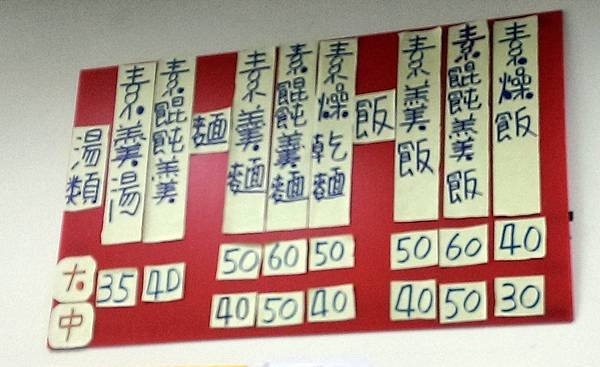 湯類
素羹湯
素餛飩羹
麵
素羹麵
素餛飩羹麵
素燥乾麵
飯
素羹飯
素餛飩羹飯
素燥飯
大
50 60 50 50 60 40
中
35 40 40 50 40 40 50 30